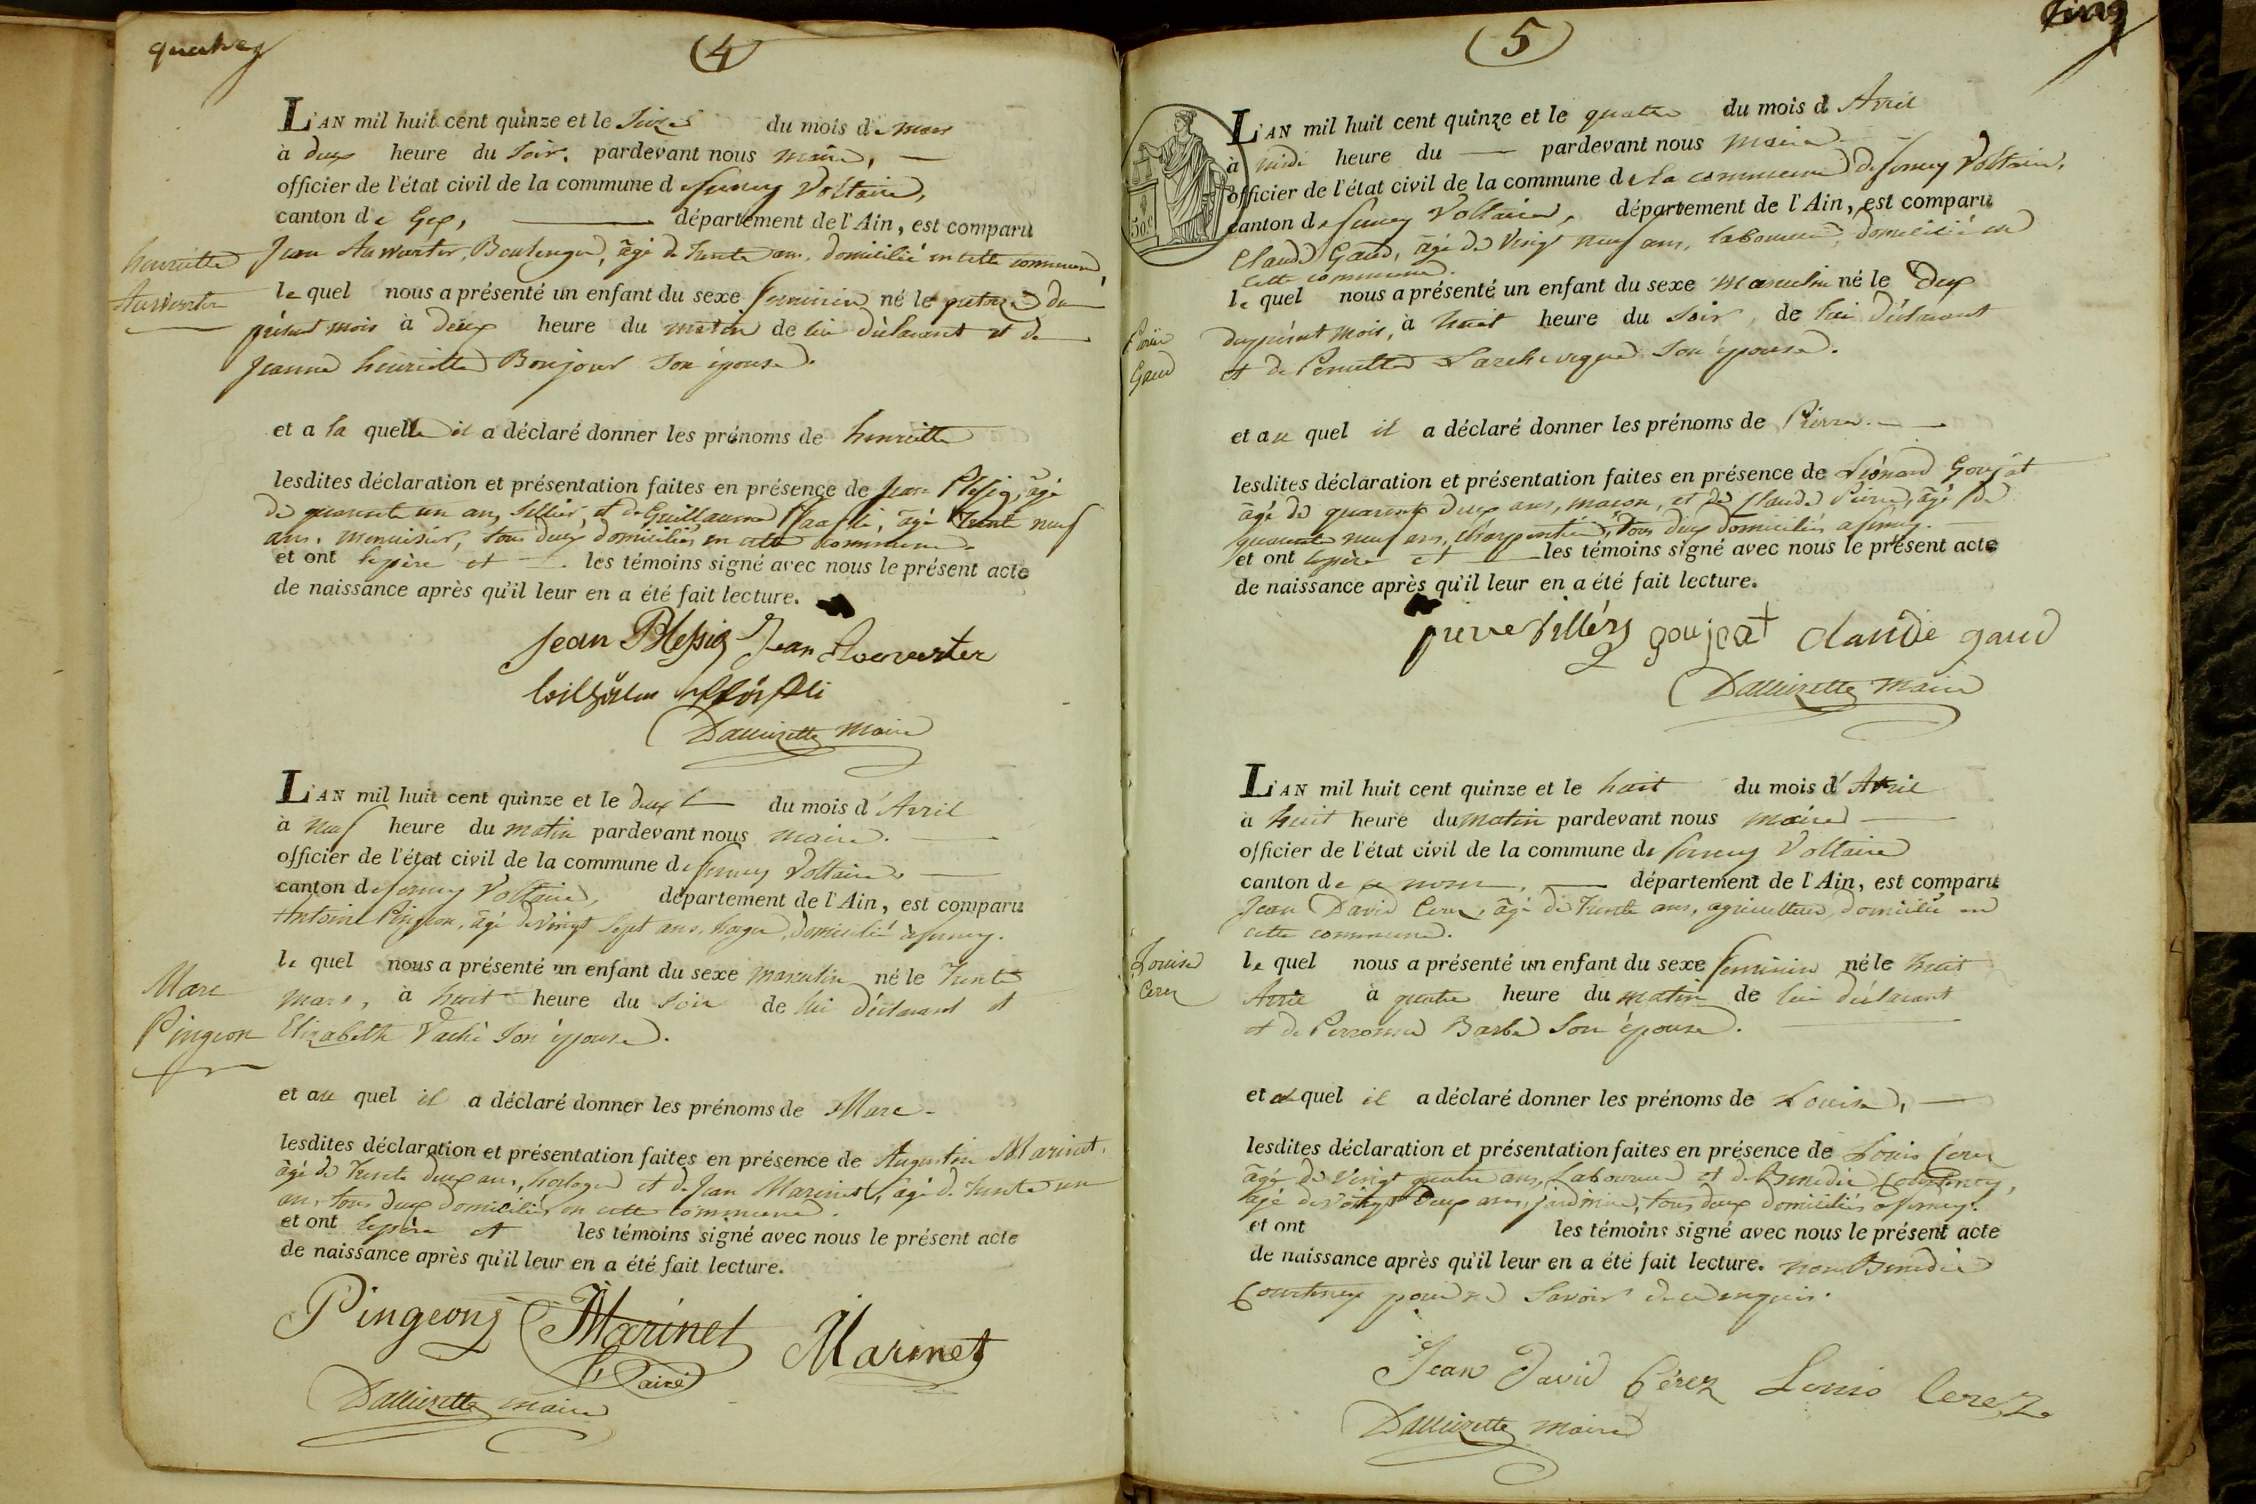 quatre
4
L'AN mil huit cent quinze et le seize du mois de mars
à deux heure du soir. pardevant nous maire,
officier de l'état civil de la commune de ferney Voltaire,
canton de Gex, département de l'Ain, est comparu
Jean Auwarter, Boulenger, âgé de trente ans, domicilié en cette commune,
henriette
Auwarter
le quel nous a présenté un enfant du sexe feminin né le quatorze du
présent mois à deux heure du matin de lui déclarant et de
Jeanne henriette Bonjour son épouse.
et a la quelle il a déclaré donner les prénoms de henriette
lesdites déclaration et présentation faites en présence de Jean Blessig, âgé
de quarante un an, sellier, et de Guillaume âgé trente neuf
ans, menuisier, tous deux domiciliés en cette commune.
et ont le père et les témoins signé avec nous le présent acte
de naissance après qu'il leur en a été fait lecture.
Jean Blessig Jean Auwerter
Wilhelm
maire
L'AN mil huit cent quinze et le deux du mois d'Avril
à neuf heure du matin pardevant nous maire.
officier de l'état civil de la commune de ferney Voltaire,
canton de ferney Voltaire, département de l'Ain, est comparu
Antoine Pingeon, âgé de vingt sept ans, horloger, domicilié à ferney.
le quel nous a présenté un enfant du sexe masculin né le trente
Marc
Pingeon
mars, à huit heure du soir de lui déclarant et
Elizabeth Vaché son épouse.
et au quel il a déclaré donner les prénoms de Marc
lesdites déclaration et présentation faites en présence de Augustin Marinet,
âgé de trente deux ans, horloger et de Jean Marinet, âgé de trente un
ans, tous deux domiciliés en cette commune.
et ont le père et les témoins signé avec nous le présent acte
de naissance après qu'il leur en a été fait lecture.
Pingeon Marinet Marinet
L'ainé
maire
cinq
5
L'AN mil huit cent quinze et le quatre du mois d'Avril
à midi heure du pardevant nous maire
officier de l'état civil de la commune de la commune de ferney Voltaire,
50c
canton de ferney Voltaire, département de l'Ain, est comparu
Claude Gaud, âgé de vingt neuf ans, laboureur, domicilié en
cette commune.
le quel nous a présenté un enfant du sexe masculin né le deux
Pierre
Gaud
du présent mois, à huit heure du soir, de lui déclarant
et de Pernette Larchevêque son épouse.
et au quel il a déclaré donner les prénoms de Pierre.
lesdites déclaration et présentation faites en présence de Léonard Goujat
âgé de quarante deux ans, maçon, et de Claude Pierre, âgé de
quarante neuf ans, charpentier, tous deux domiciliés à ferney.
et ont le père et les témoins signé avec nous le présent acte
de naissance après qu'il leur en a été fait lecture.
goujat claude gaud
maire
L'AN mil huit cent quinze et le huit du mois d'Avril
à huit heure du matin pardevant nous maire
officier de l'état civil de la commune de ferney Voltaire
canton de ce nom, département de l'Ain, est comparu
Jean David Cerez, âgé de trente ans, agriculteur, domicilié en
cette commune.
Louise
Cerez
le quel nous a présenté un enfant du sexe feminin né le huit
Avril à quatre heure du matin de lui déclarant
et de Perronne Barbe son épouse.
et a quel il a déclaré donner les prénoms de Louise,
lesdites déclaration et présentation faites en présence de Louis Cerez
âgé de vingt quatre ans, Laboureur et de Benedic Courtney,
âgé de vingt deux ans, jardinier, tous deux domiciliés à ferney.
et ont les témoins signé avec nous le présent acte
de naissance après qu'il leur en a été fait lecture. non Benedic
Courtney pour ne savoir de ce enquis.
Jean David Cérez Louis Cerez
maire